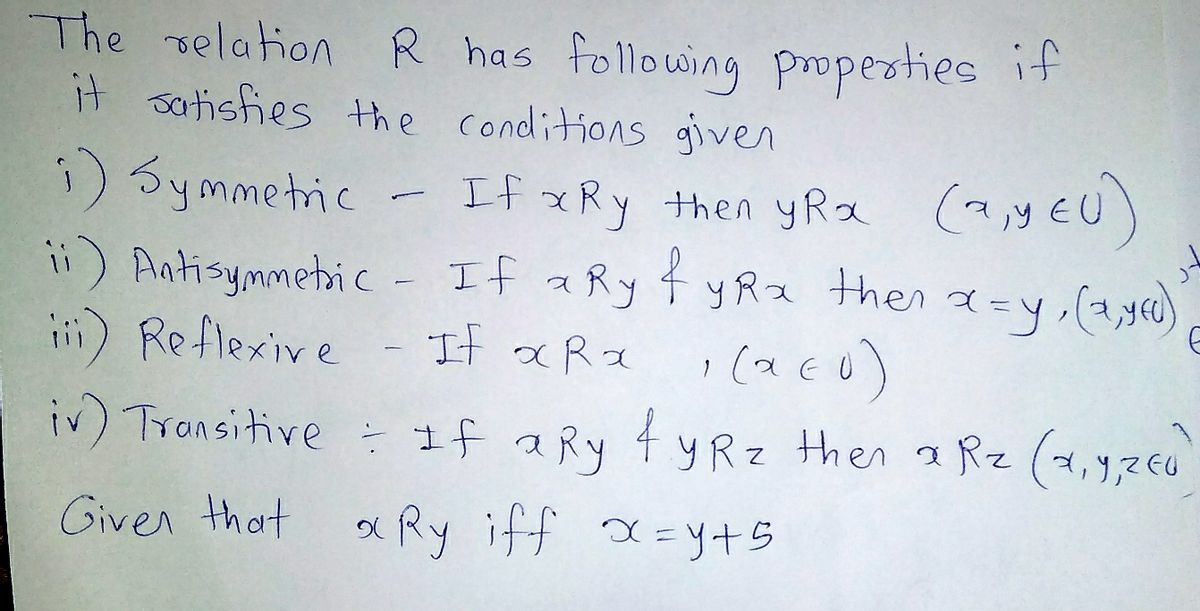 The relation R has following properties if
it satisfies the conditions given
i) Symmetric - If xRy then yRx (x,y ∈ U)
ii) Antisymmetric - If xRy & yRx then x=y, (x,y∈U)
iii) Reflexive - If xRx , (x ∈ U)
iv) Transitive ÷ If xRy & yRz then xRz (x,y,z∈U)
Given that xRy iff x=y+5